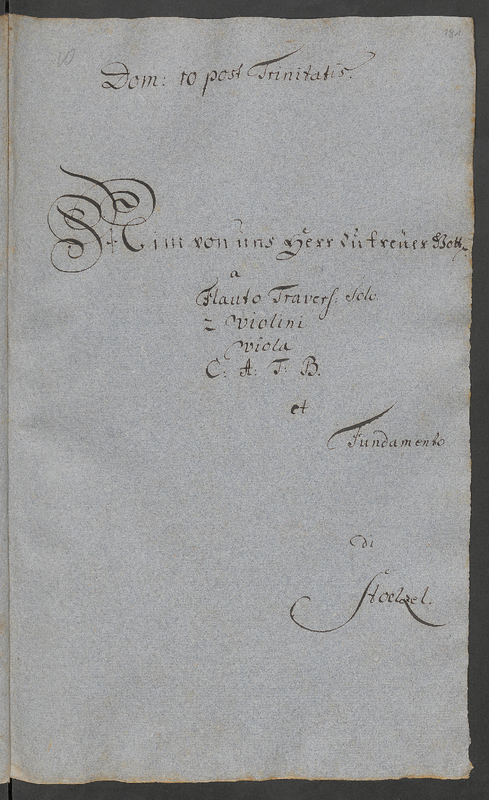 10
181
Dom: 10 post Trinitatis.
Nim von uns Herr du treuer Gott,
a
Flauto Travers. Solo
2 Violini
Viola
C. A. T. B.
et
Fundamento
di
Stoelzel.